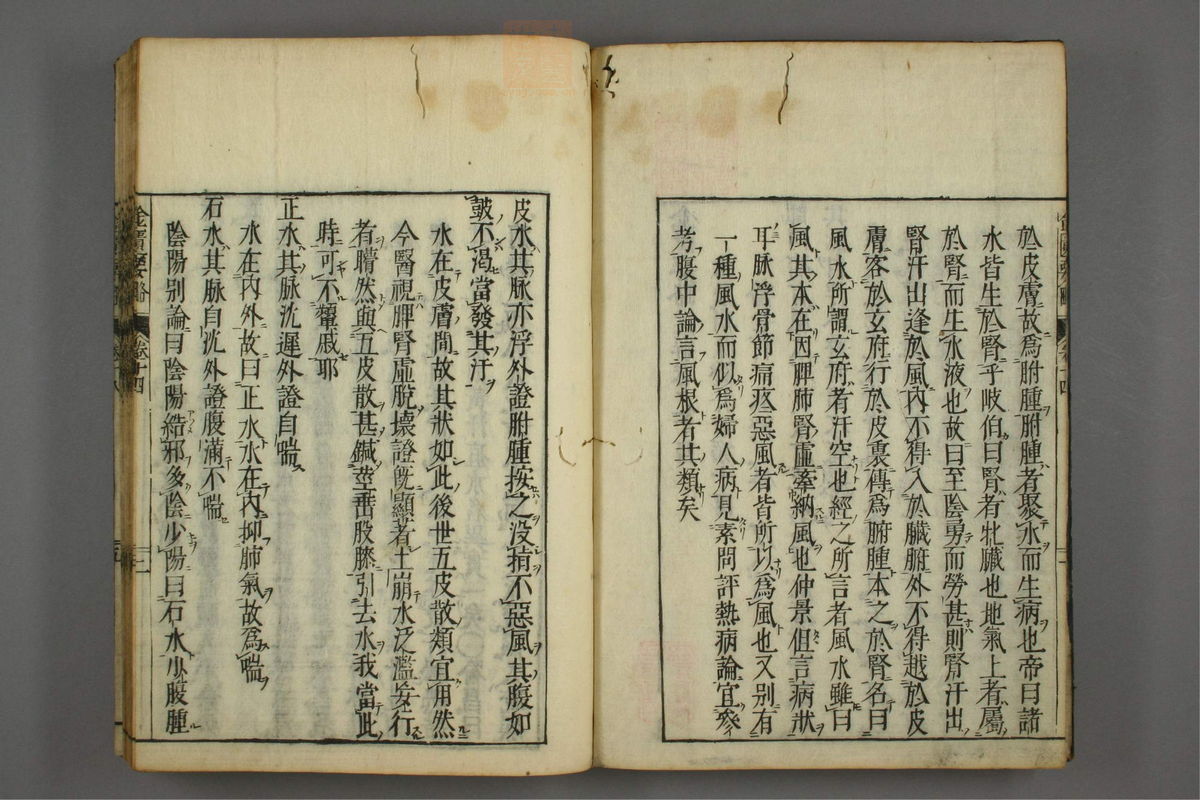 於皮膚故爲胕腫胕腫者聚水而生病也帝曰諸
水皆生於腎乎岐伯曰腎者牝臟也地氣上者屬
於腎而生水液也故曰至陰勇而勞甚則腎汗出
腎汗出逢於風內不得入於臟腑外不得越於皮
膚客於玄府行於皮裏傳爲胕腫本之於腎名曰
風水所謂玄府者汗空也經之所言者風水雖曰
風其本在因脾肺腎虛牽納風也仲景但言病狀
耳脉浮骨節痛疼惡風者皆所以爲風也又別有
一種風水而似爲婦人病見素問評熱病論宜參
考腹中論言風根者共類矣
皮水其脉亦浮外證胕腫按之没指不惡風其腹如
皷不渴當發其汗
水在皮膚間故其狀如此後世五皮散類宜用然
今醫視脾腎虛脫壞證旣顯著土崩水泛濫妄行
者瞢然與五皮散甚鍼莖垂股膝引去水我當此
時可不顰戚耶
正水其脉沈遲外證自喘
水在內外故曰正水水在內抑肺氣故爲喘
石水其脉自沈外證腹滿不喘
陰陽別論曰陰陽結邪多陰少陽曰石水少腹腫